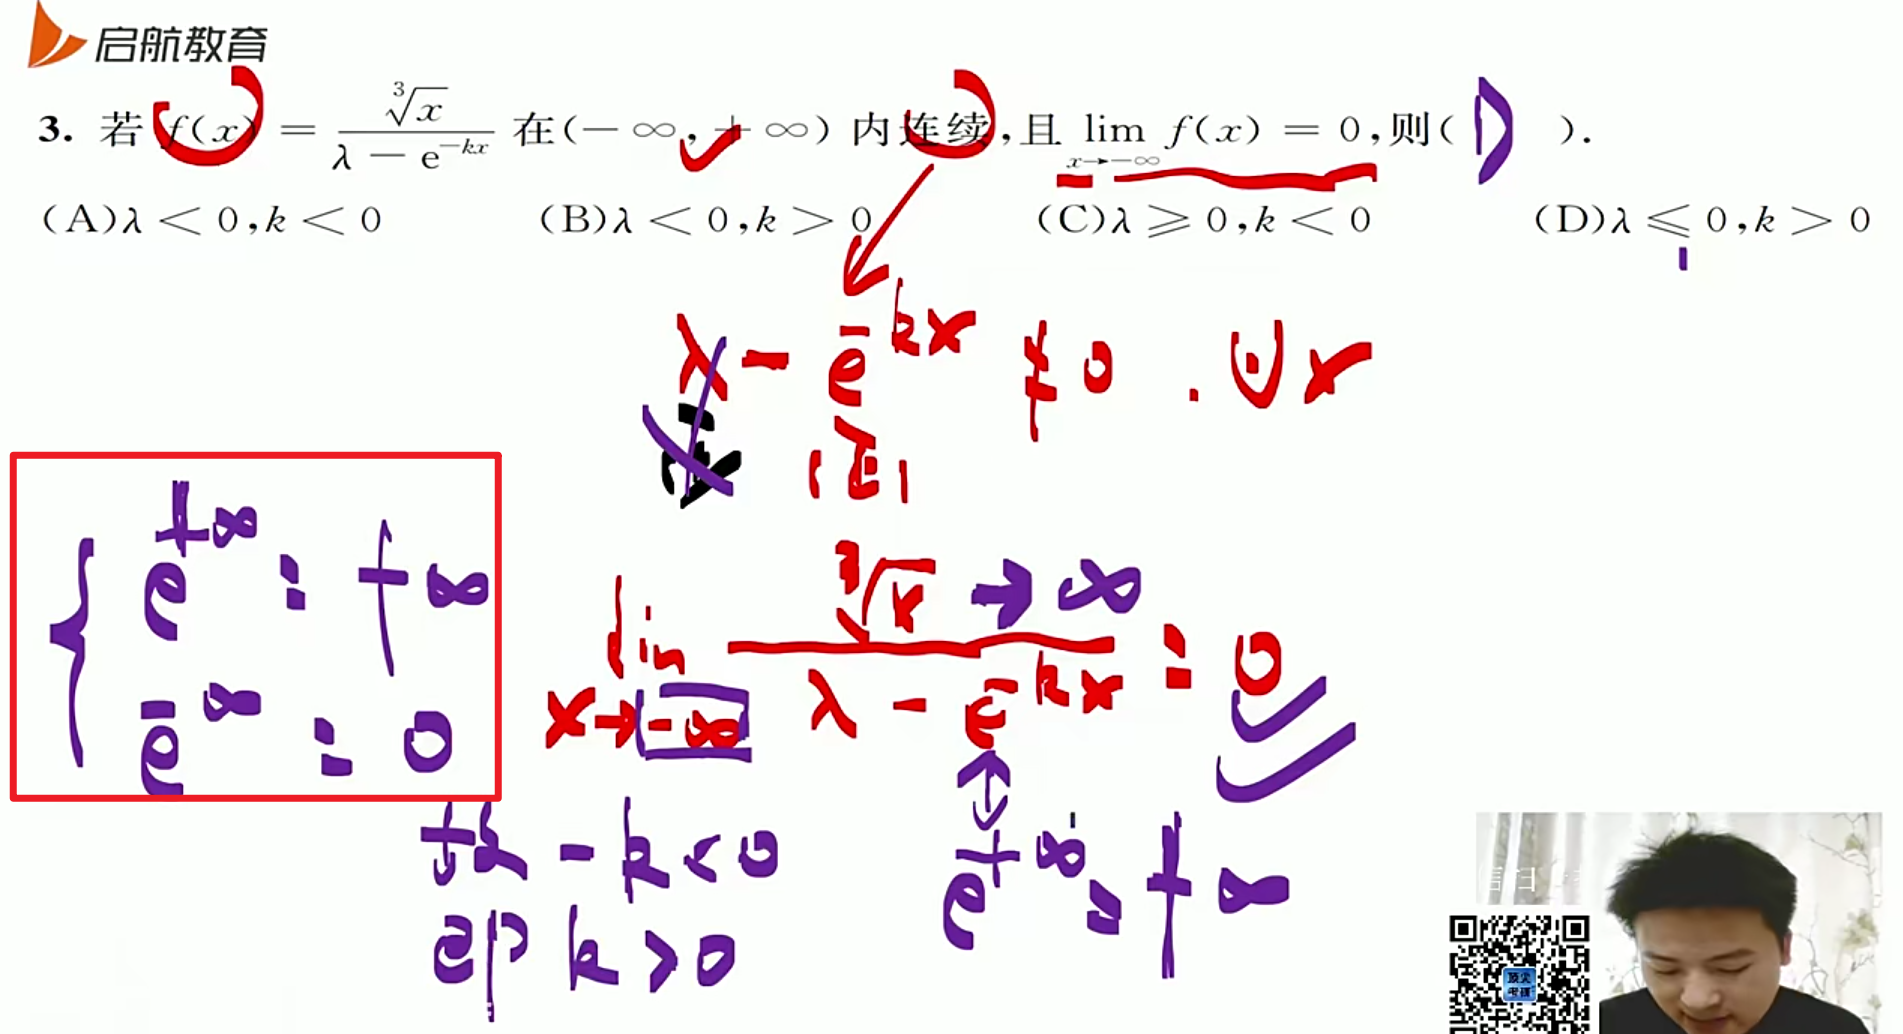 启航教育
3. 若 f(x) = \frac{\sqrt[3]{x}}{λ - e^{-kx}} 在(-∞, +∞) 内连续,且 \lim_{x→-∞} f(x) = 0,则( D ).
(A)λ < 0,k < 0 (B)λ < 0,k > 0 (C)λ ⩾ 0,k < 0 (D)λ ⩽ 0,k > 0
λ - e^{-kx} ≠ 0 . ∀x
正
e^{+∞} = +∞
e^{-∞} = 0
\lim_{x→-∞} \frac{\sqrt[3]{x} → ∞}{λ - e^{-kx}} = 0
-k < 0
e^{+∞} = +∞
即 k > 0